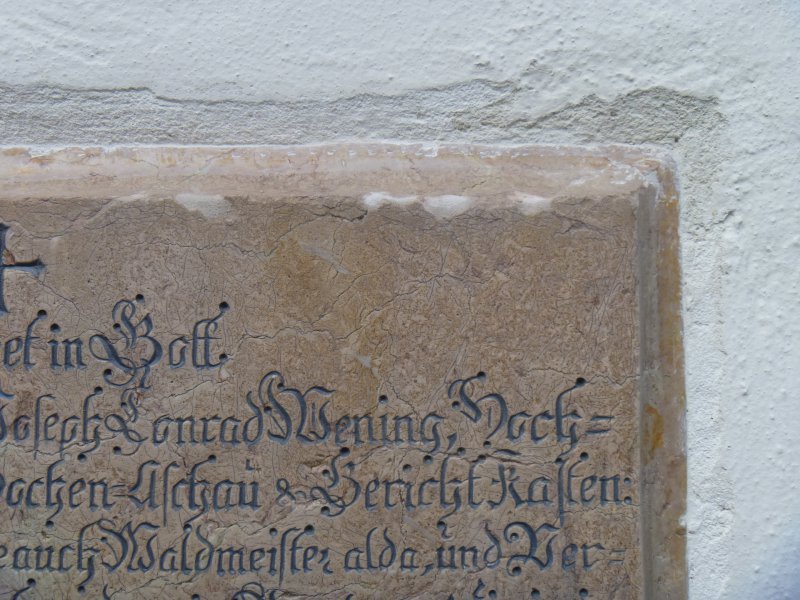 et in Gott.
Joseph Conrad Wening, Hoch=
ochen=Aschau & Gericht Kasten:
auch Waldmeister alda, und Ver=